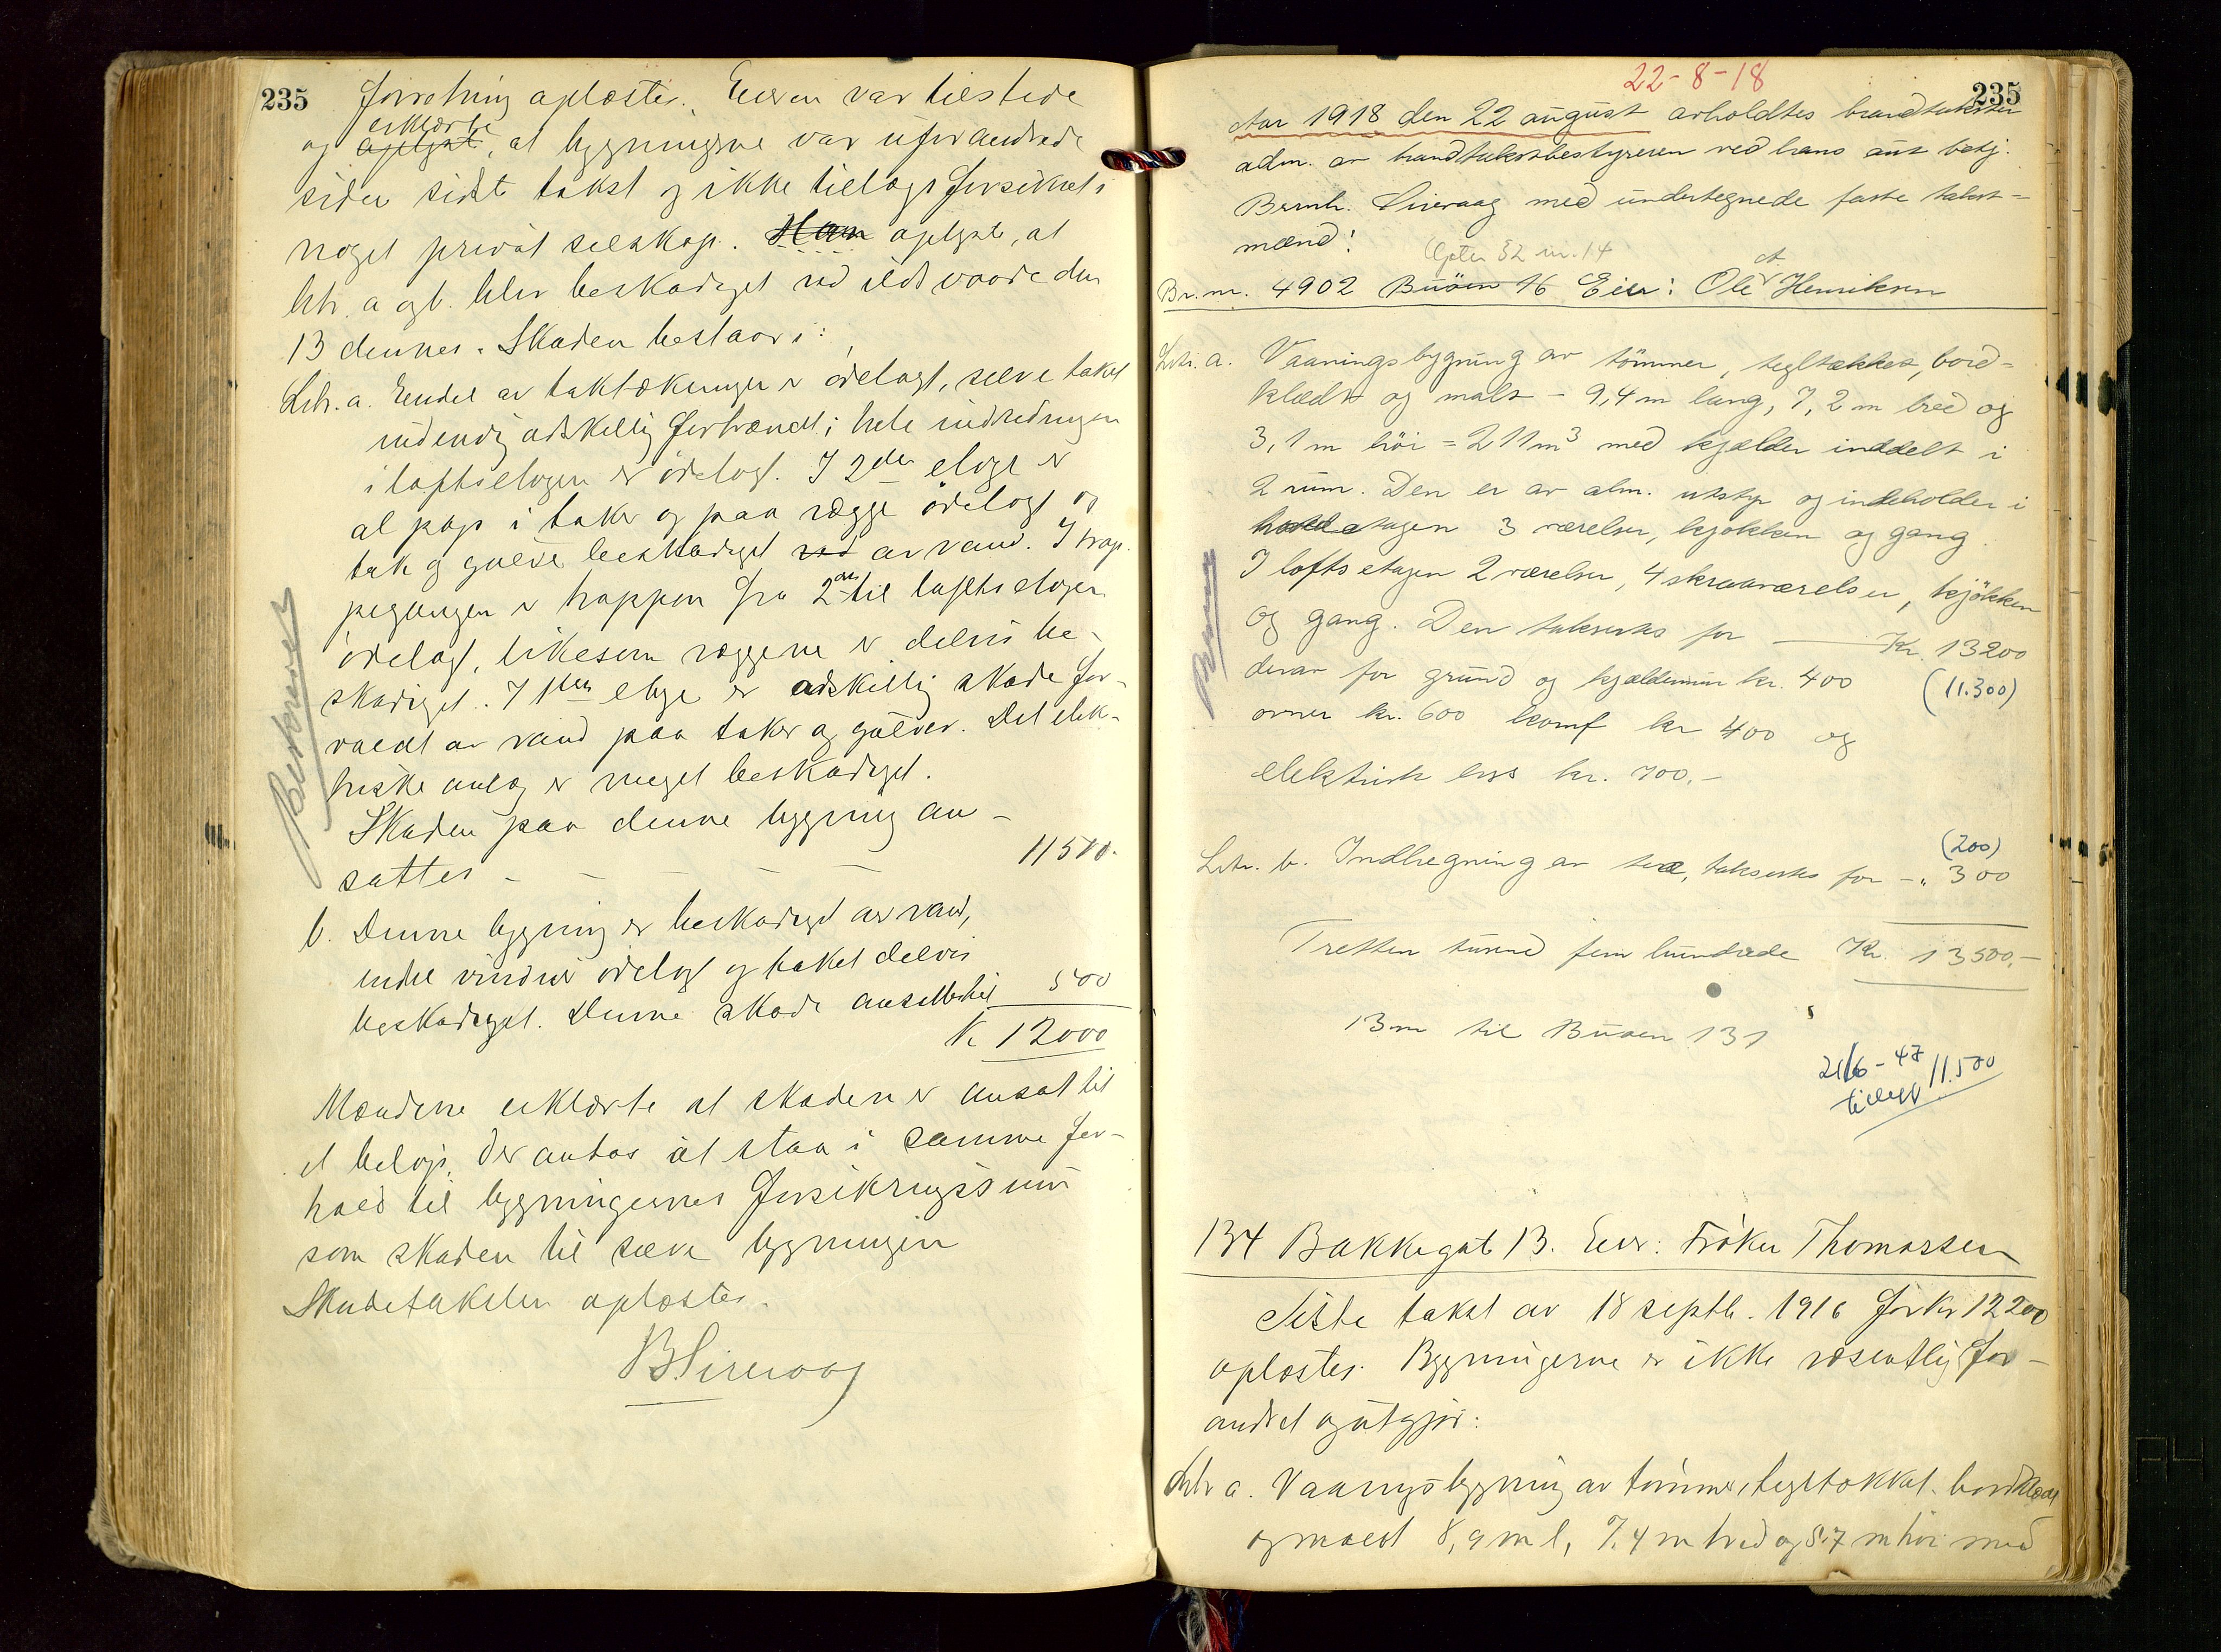 235
forretning oplæstes. Eieren var tilstede
erklærte
og oplyste, at bygningerne var uforandrede
siden sidste takst og ikke tillags forsikret i
noget privat selskap. Han oplyste, at
litr. a og b. blev beskadiget ved ildsvaade den
13 dennes. Skaden bestaar i:
Litr. a. Endel av taktækningen er ødelagt, selve taket
indvendig adskillig forbrændt; hele indredningen
i loftsetagen er ødelagt. I 2den etage er
al pap i taker og paa vægge ødelagt og
tak og gulve beskadiget ved av vand. I trap-
pegangen er trappen fra 2den til loftsetagen
ødelagt, likesom væggene er delvis be-
skadiget. I 1ste etage er adskillig skade for-
voldt av vand paa taker og gulver. Det elek-
triske anlæg er meget beskadiget.
Skaden paa denne bygning an-
sættes - - - - - 11500.
b. Denne bygning er beskadiget av vand,
endel vinduer ødelagt og taket delvis
beskadiget. Denne skade ansættes til 500
Kr 12000
Mændene erklærte at skaden er ansat til
et beløp, der antas at staa i samme for-
hold til bygningernes forsikringssum
som skaden til selve bygningen
Skadetaksten oplæstes.
B Sirevaag
235
22-8-18
Aar 1918 den 22 august avholdtes brandtakster
adm. av brandtakstbestyreren ved hans aut betj.
Bernh. Sirevaag med undertegnede faste takst-
mænd:
Gjter 32 nr. 14
Br.nr. 4902 Buöen 16 Eier: Ole Henriksen
Litr. a. Vaaningsbygning av tömmer, tegltækket, bord-
klædt og malt - 9,4 m lang, 7,2 m bred og
3,1 m höi = 211 m3 med kjælder inddelt i
2 rum. Den er av alm. utstyr og indeholder i
hovedetagen 3 værelser, kjøkken og gang.
I loftsetagen 2 værelser, 4 skraaværelser, kjökken
og gang. Den taksertes for Kr. 13200
derav for grund og kjældermur kr. 400 (11.300)
ovner kr. 600 komf kr 400 og
elektrisk lys kr. 700.-
(200)
Litr. b. Indhegning av træ, taksertes for - " 300
Tretten tusend fem hundrede Kr. 13500,-
13 m til Buöen 131
21/6 - 47
tillegg 11.500
134 Bakkegat 13. Eier: Frøken Thomassen
Siste takst av 18 septb. 1916 for kr 12200
oplæstes. Bygningerne er ikke væsentlig for-
andret og utgjør:
Litr a. Vaaningsbygning av tømmer, tegltækket, bordklædt
og malt 8,9 m l, 7,4 m bred og 5,7 m høi med